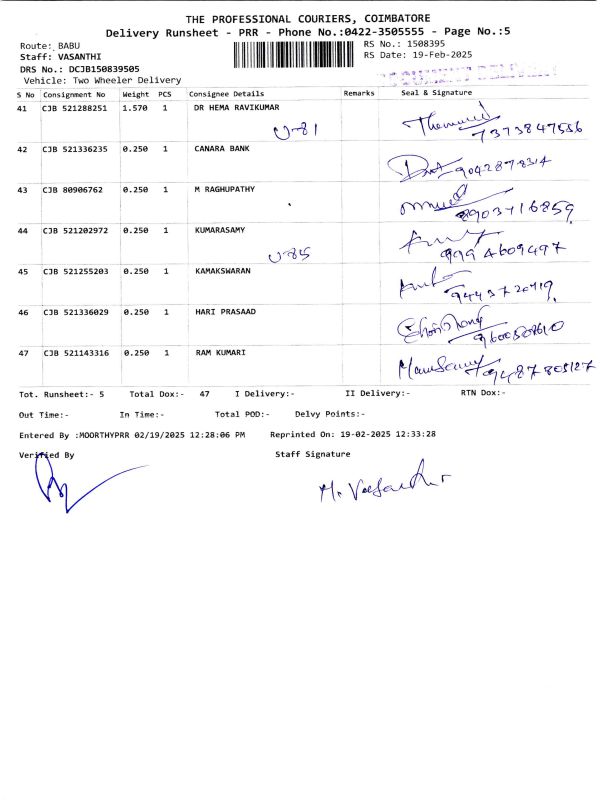 THE PROFESSIONAL COURIERS, COIMBATORE
Delivery Runsheet - PRR - Phone No.:0422-3505555 - Page No.:5
Route: BABU
RS No.: 1508395
Staff: VASANTHI
RS Date: 19-Feb-2025
DRS No.: DCJB150839505
Vehicle: Two Wheeler Delivery
S No Consignment No Weight PCS Consignee Details Remarks Seal & Signature
41 CJB 521288251 1.570 1 DR HEMA RAVIKUMAR
U-81 7373847556
42 CJB 521336235 0.250 1 CANARA BANK
9042878314
43 CJB 80906762 0.250 1 M RAGHUPATHY
8903716859
44 CJB 521202972 0.250 1 KUMARASAMY
U-85 9994609497
45 CJB 521255203 0.250 1 KAMAKSWARAN
46 CJB 521336029 0.250 1 HARI PRASAAD
47 CJB 521143316 0.250 1 RAM KUMARI
Tot. Runsheet:- 5 Total Dox:- 47 I Delivery:- II Delivery:- RTN Dox:-
Out Time:- In Time:- Total POD:- Delvy Points:-
Entered By :MOORTHYPRR 02/19/2025 12:28:06 PM Reprinted On: 19-02-2025 12:33:28
Verified By Staff Signature